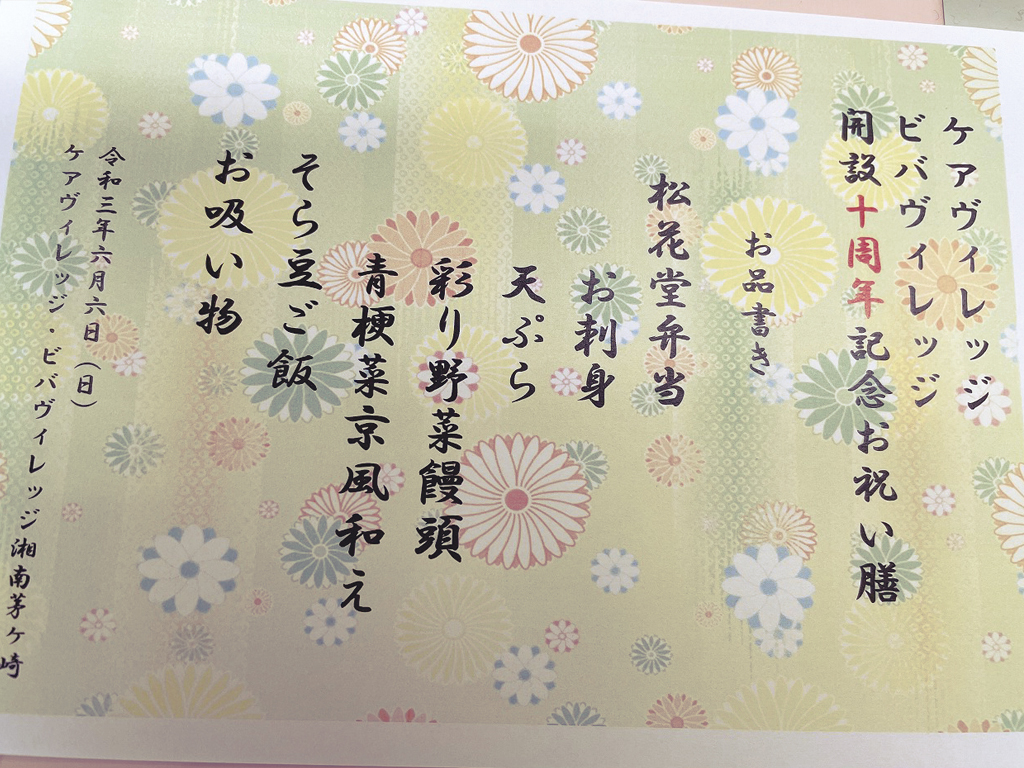 ケアヴィレッジ
ビバヴィレッジ
開設十周年記念お祝い膳
お品書き
松花堂弁当
お刺身
天ぷら
彩り野菜饅頭
青梗菜京風和え
そら豆ご飯
お吸い物
令和三年六月六日（日）
ケアヴィレッジ・ビバヴィレッジ湘南茅ヶ崎